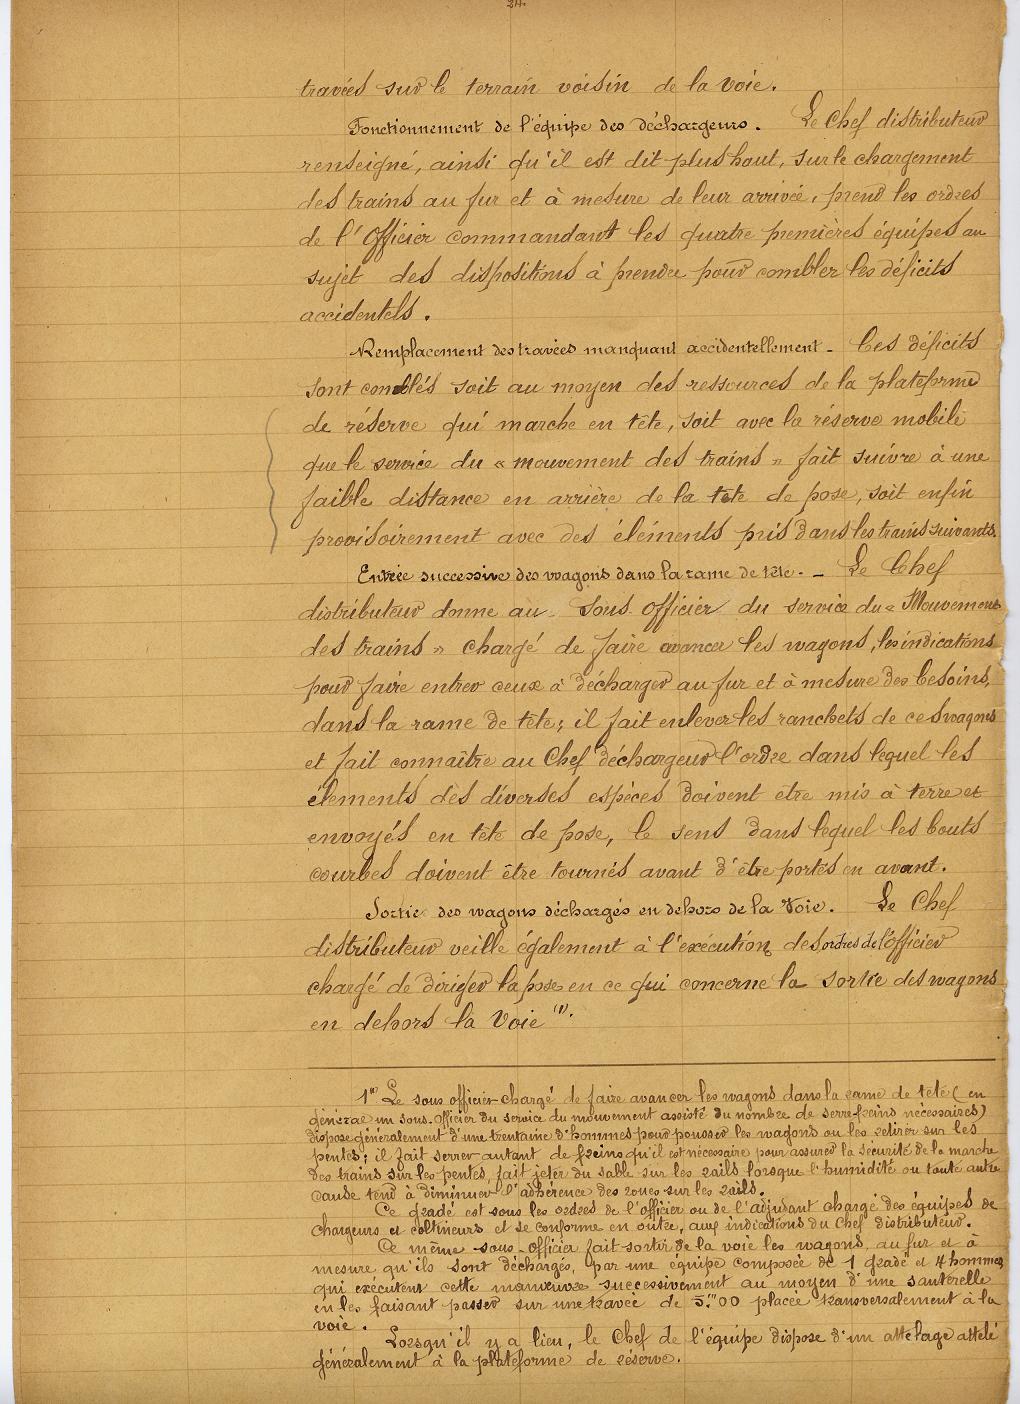 24.
travées sur le terrain voisin de la voie.
Fonctionnement de l'équipe des déchargeurs. Le Chef distributeur
renseigné, ainsi qu'il est dit plus haut, sur le chargement
des trains au fur et à mesure de leur arrivée, prend les ordres
de l'Officier commandant les quatre premières équipes au
sujet des dispositions à prendre pour combler les déficits
accidentels.
Remplacement des travées manquant accidentellement - Ces déficits
sont comblés soit au moyen des ressources de la plateforme
de réserve qui marche en tête, soit avec la réserve mobile
que le service du « mouvement des trains » fait suivre à une
faible distance en arrière de la tête de pose, soit enfin
provisoirement avec des éléments pris dans les trains suivants.
Entrée successive des wagons dans la rame de tête. - Le Chef
distributeur donne au Sous Officier du service du « Mouvement
des trains » chargé de faire avancer les wagons, les indications
pour faire entrer ceux à décharger au fur et à mesure des besoins,
dans la rame de tête; il fait enlever les ranchets de ces wagons
et fait connaître au Chef déchargeur l'ordre dans lequel les
élements des diverses espèces doivent être mis à terre et
envoyés en tête de pose, le sens dans lequel les bouts
courbes doivent être tournés avant d'être portés en avant.
Sortie des wagons déchargés en dehors de la Voie. Le Chef
distributeur veille également à l'exécution des ordres de l'officier
chargé de diriger la pose en ce qui concerne la sortie des wagons
en dehors la Voie (1).
1° Le sous officier chargé de faire avancer les wagons dans la rame de tête (en
général un sous-Officier du service du mouvement assisté du nombre de serre-freins nécessaires)
dispose généralement d'une trentaine d'hommes pour pousser les wagons ou les retirer sur les
pentes; il fait serrer autant de freins qu'il est nécessaire pour assurer la sécurité de la marche
des trains sur les pentes, fait jeter du sable sur les rails lorsque l'humidité ou toute autre
cause tend à diminuer l'adhérence des roues sur les rails.
Ce gradé est sous les ordres de l'officier ou de l'adjudant chargé des équipes de
chargeurs et coltineurs et se conforme en outre, aux indications du Chef distributeur.
Ce même sous-Officier fait sortir de la voie les wagons, au fur et à
mesure qu'ils sont déchargés, par une équipe composée de 1 gradé et 4 hommes
qui exécutent cette manœuvre successivement au moyen d'une sauterelle
en les faisant passer sur une travée de 5.m00 placée transversalement à la
voie.
Lorsqu'il y a lieu, le Chef de l'équipe dispose d'un attelage attelé
généralement à la plateforme de réserve.